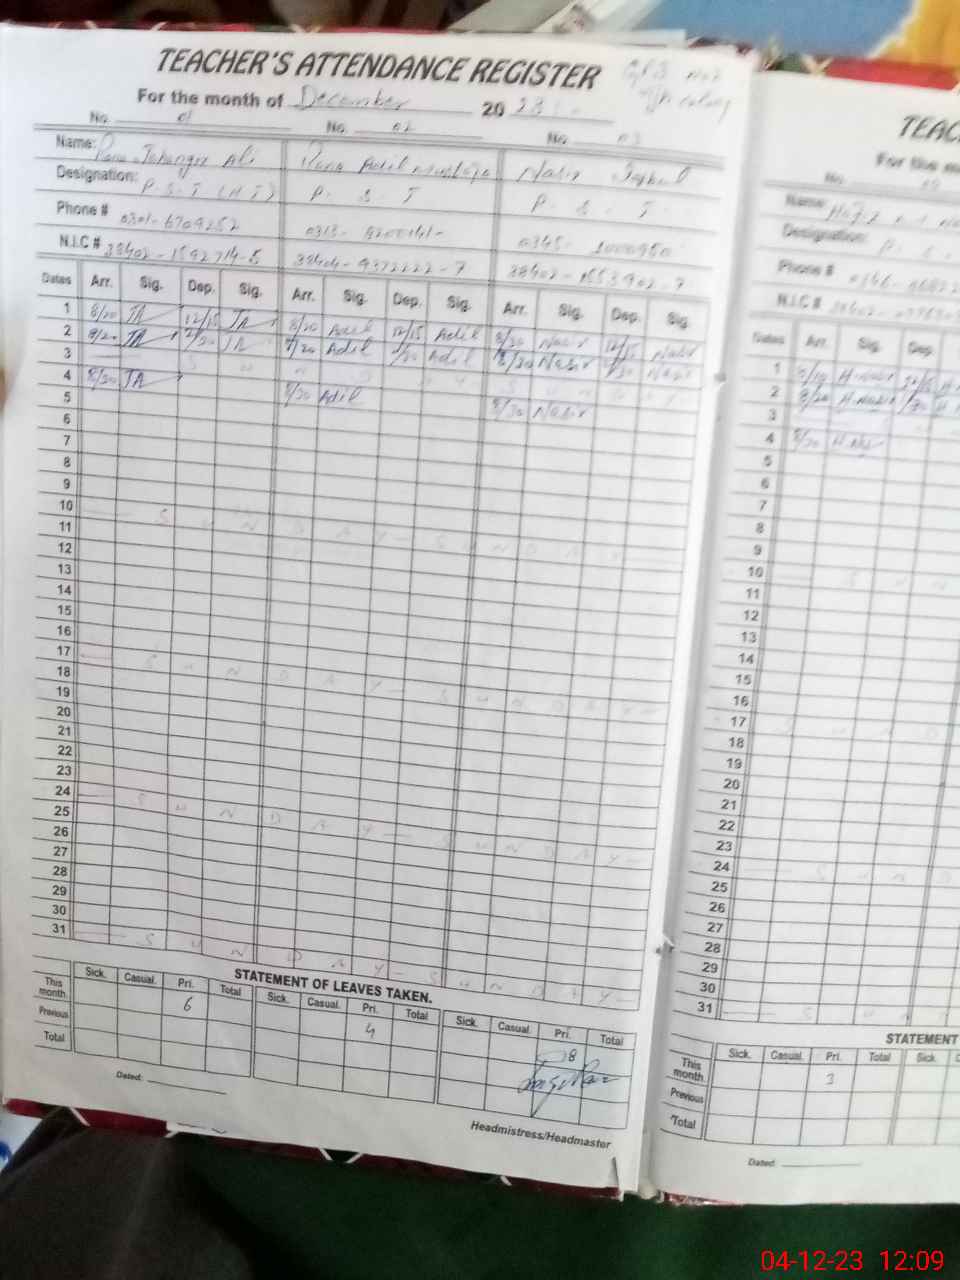 TEACHER'S ATTENDANCE REGISTER
For the month of December 20 23
No. 01 No. 02 No. 03
Name: Rana Jahangir Ali Rana Adil Mustafa Nasir Iqbal
Designation: P.S.T (H T) P. S. T P. S. T
Phone # 0301-6709252 0313- 0345- 1000950
N.I.C # 38402-1592714-5 38404-9372222-7 38402-
Dates Arr. Sig. Dep. Sig. Arr. Sig. Dep. Sig. Arr. Sig. Dep. Sig.
1 8/20 JA 12/15 JA 8/20 Adil 12/15 Adil 8/30 Nasir 12/15 Nasir
2 8/20 JA 2/30 JA 8/20 Adil Adil 8/30 Nasir Nasir
3 S U N D A Y S U N
4 8/20 JA 8/20 Adil 8/30 Nasir
5
6
7
8
9
10 S U N D A Y - S U N D A Y
11
12
13
14
15
16
17 S U N D A Y - S U N D A Y
18
19
20
21
22
23
24 S U N D A Y - S U N D A Y
25
26
27
28
29
30
31 S U N D A Y - S U N D A Y
STATEMENT OF LEAVES TAKEN.
Sick. Casual. Pri. Total Sick. Casual. Pri. Total Sick. Casual. Pri. Total
This month. 6 4 8
Previous
Total
Dated:
Headmistress/Headmaster
TEAC
For the m
No.
Name:
Designation: P. S.
Phone #
N.I.C #
Dates Arr. Sig. Dep.
1 8/20 H-Nasir H
2 8/20 H-Nasir H
3
4 8/20
5
6
7
8
9
10 S U N
11
12
13
14
15
16
17 S U N D
18
19
20
21
22
23
24 S U N D
25
26
27
28
29
30
31 S U N
STATEMENT
Sick. Casual. Pri. Total Sick. C
This month. 3
Previous
Total
Dated:
04-12-23 12:09